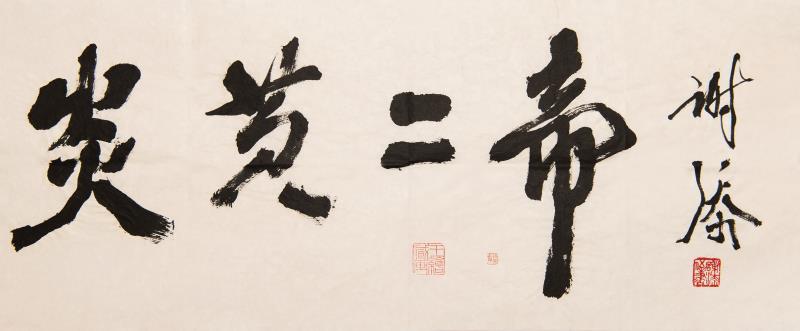 炎黄二帝
谢添